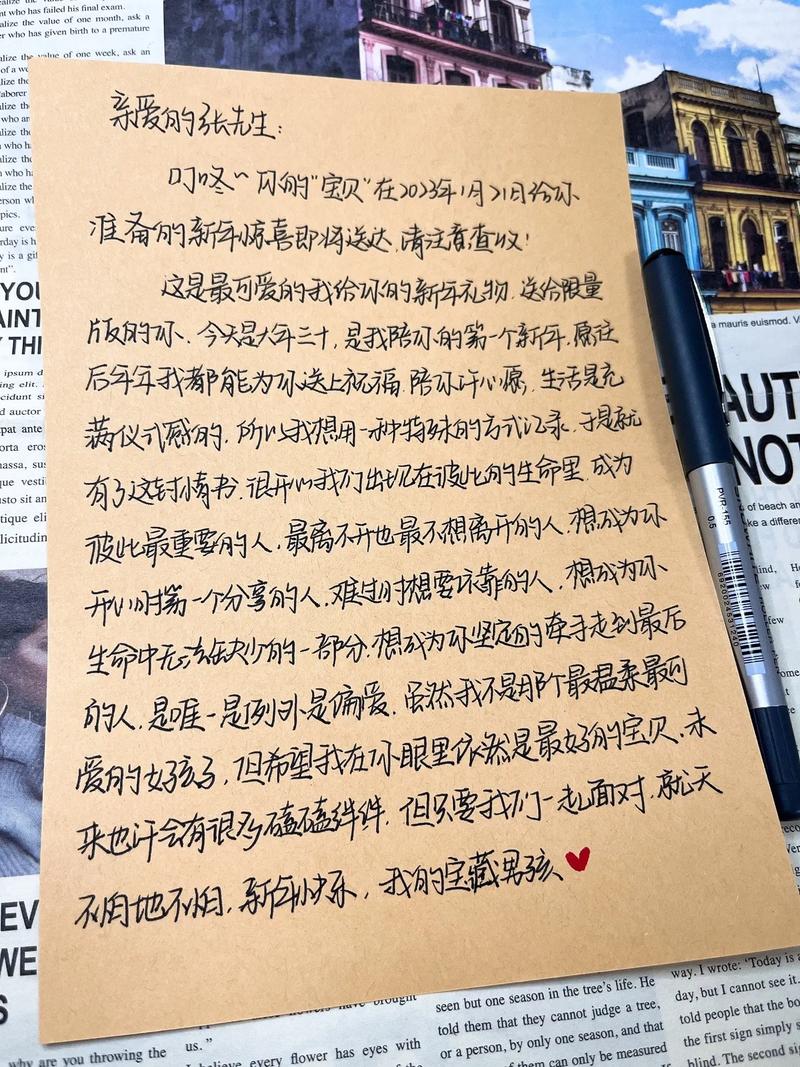 亲爱的张先生:
叮咚~ 你的"宝贝"在2023年1月21日给你
准备的新年惊喜即将送达,请注意查收!
这是最可爱的我给你的新年礼物,送给限量
版的你、今天是大年三十,是我陪你的第一个新年,愿往
后年年我都能为你送上祝福,陪你许心愿,生活是充
满仪式感的,所以我想用一种特殊的方式记录,于是就
有了这封情书,很开心我们出现在彼此的生命里,成为
彼此最重要的人,最离不开也最不想离开的人,想成为你
开心时第一个分享的人,难过时想要依靠的人,想成为你
生命中无法缺少的一部分,想成为你坚定的牵手走到最后
的人,是唯一是例外是偏爱,虽然我不是那个最温柔最可
爱的女孩子,但希望我在你眼里依然是最好的宝贝,未
来也许会有很多磕磕绊绊,但只要我们一起面对,就天
不怕地不怕,新年快乐,我的宝藏男孩
PVR-155
0.5
6920024531240
a mauris euismod.
AUT
NOT
of beach an
ke a differen
seen but one season in the tree's life. He
told them that they cannot judge a tree,
or a person, by only one season, and that
of them can only be measured
way. I wrote: 'Today is a
day, but I cannot see it.
told people that the
the first sign simply s
blind. The second sig
why are you throwing the
us."
I believe every flower has eyes with
who has failed his final exam.
alize the value of one month, ask a
er who has given birth to a premature
alize the value of one week, ask an